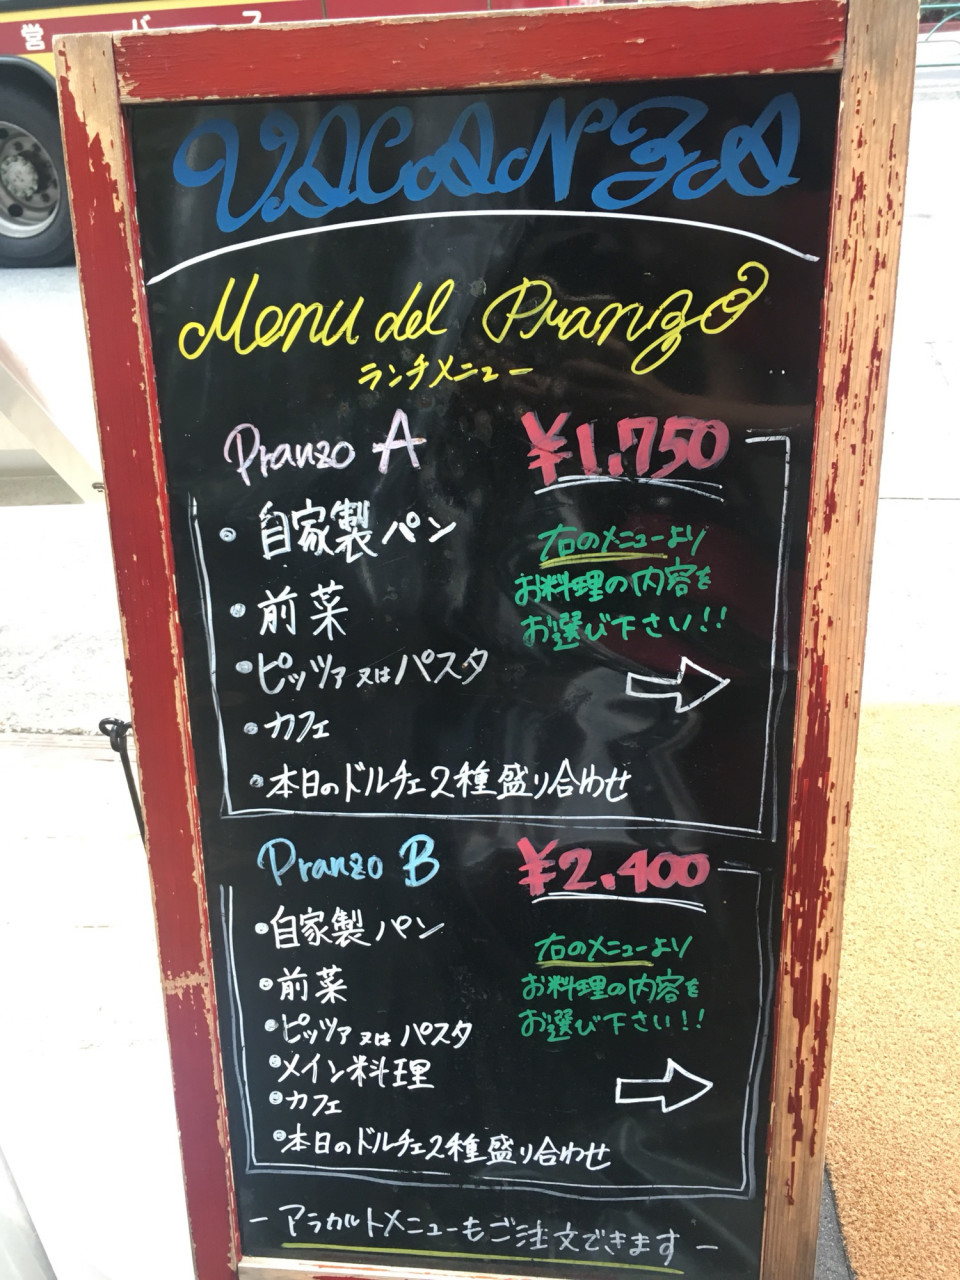 営バス
VACANZA
Menu del Pranzo
ランチメニュー
Pranzo A ¥1,750
・自家製パン
・前菜
・ピッツァ又はパスタ
・カフェ
・本日のドルチェ2種盛り合わせ
右のメニューより
お料理の内容を
お選び下さい!!
Pranzo B ¥2.400
・自家製パン
・前菜
・ピッツァ又はパスタ
・メイン料理
・カフェ
・本日のドルチェ2種盛り合わせ
右のメニューより
お料理の内容を
お選び下さい!!
- アラカルトメニューもご注文できます -